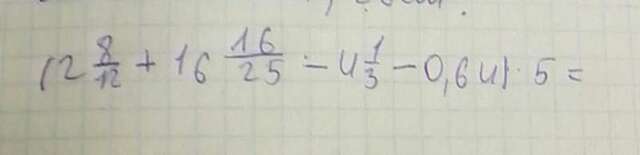 (2 8/12 + 16 16/25 - 4 1/3 - 0,64) · 5 =